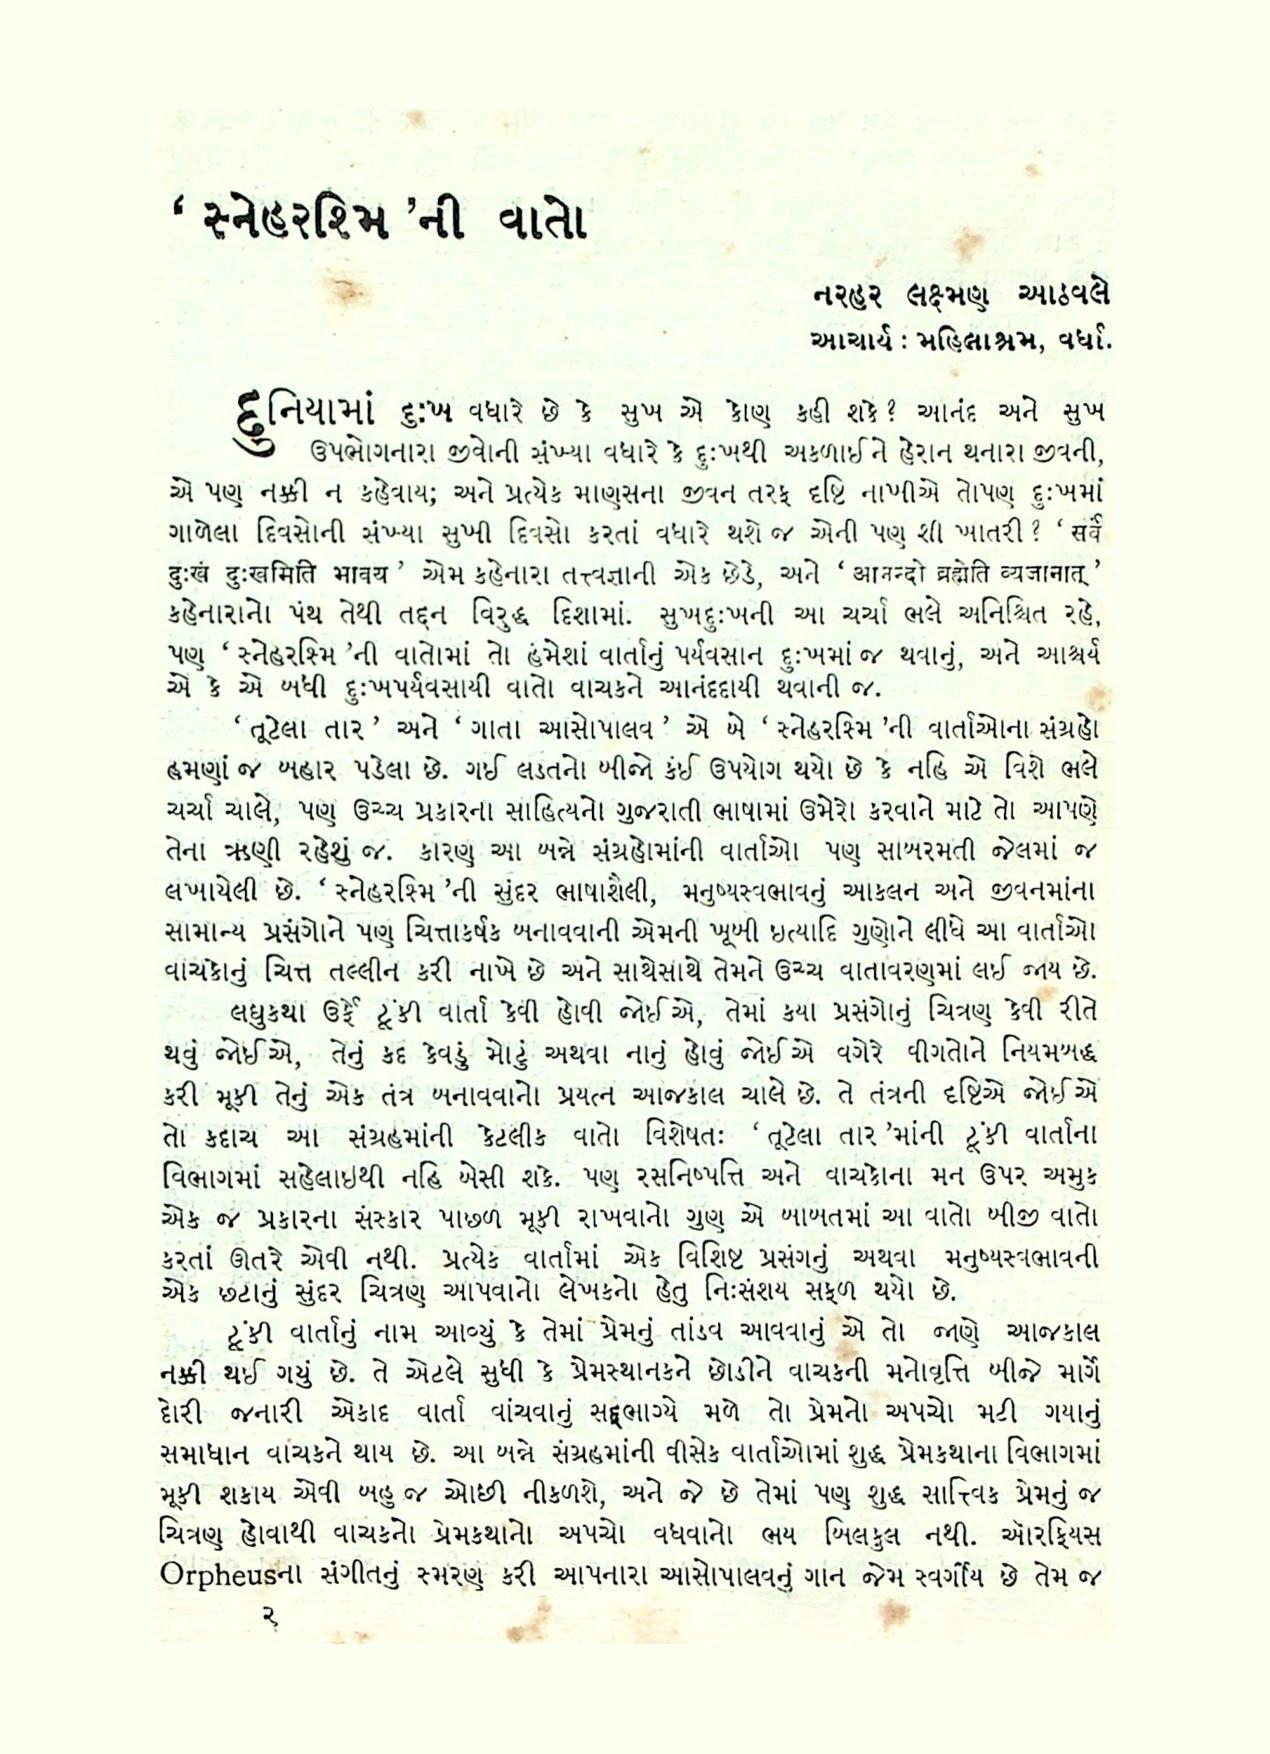 ‘ સ્નેહરશ્મિ ’ની વાતો
નરહર લક્ષ્મણ આઠવલે
આચાર્ય : મહિલાશ્રમ, વર્ધા.
દુનિયામાં દુઃખ વધારે છે કે સુખ એ કોણ કહી શકે? આનંદ અને સુખ
ઉપભોગનારા જીવોની સંખ્યા વધારે કે દુઃખથી અકળાઈને હેરાન થનારા જીવની,
એ પણ નક્કી ન કહેવાય; અને પ્રત્યેક માણસના જીવન તરફ દૃષ્ટિ નાખીએ તોપણ દુઃખમાં
ગાળેલા દિવસોની સંખ્યા સુખી દિવસો કરતાં વધારે થશે જ એની પણ શી ખાતરી? ‘ सर्वं
दुःखं दुःखमिति भावय ’ એમ કહેનારા તત્ત્વજ્ઞાની એક છેડે, અને ‘ आनन्दो ब्रह्मेति व्यजानात् ’
કહેનારાનો પંથ તેથી તદ્દન વિરુદ્ધ દિશામાં. સુખદુઃખની આ ચર્ચા ભલે અનિશ્ચિત રહે,
પણ ‘ સ્નેહરશ્મિ ’ની વાતોમાં તો હંમેશાં વાર્તાનું પર્યવસાન દુઃખમાં જ થવાનું, અને આશ્ચર્ય
એ કે એ બધી દુઃખપર્યવસાયી વાતો વાચકને આનંદદાયી થવાની જ.
‘ તૂટેલા તાર ’ અને ‘ ગાતા આસોપાલવ ’ એ બે ‘ સ્નેહરશ્મિ ’ની વાર્તાઓના સંગ્રહો
હમણાં જ બહાર પડેલા છે. ગઈ લડતનો બીજો કંઈ ઉપયોગ થયો છે કે નહિ એ વિશે ભલે
ચર્ચા ચાલે, પણ ઉચ્ચ પ્રકારના સાહિત્યનો ગુજરાતી ભાષામાં ઉમેરો કરવાને માટે તો આપણે
તેના ઋણી રહેશું જ. કારણ આ બન્ને સંગ્રહોમાંની વાર્તાઓ પણ સાબરમતી જેલમાં જ
લખાયેલી છે. ‘ સ્નેહરશ્મિ ’ની સુંદર ભાષાશૈલી, મનુષ્યસ્વભાવનું આકલન અને જીવનમાંના
સામાન્ય પ્રસંગોને પણ ચિત્તાકર્ષક બનાવવાની એમની ખૂબી ઇત્યાદિ ગુણોને લીધે આ વાર્તાઓ
વાચકોનું ચિત્ત તલ્લીન કરી નાખે છે અને સાથેસાથે તેમને ઉચ્ચ વાતાવરણમાં લઈ જાય છે.
લઘુકથા ઉર્ફે ટૂંકી વાર્તા કેવી હોવી જોઈએ, તેમાં કયા પ્રસંગોનું ચિત્રણ કેવી રીતે
થવું જોઈએ, તેનું કદ કેવડું મોટું અથવા નાનું હોવું જોઈએ વગેરે વીગતોને નિયમબદ્ધ
કરી મૂકી તેનું એક તંત્ર બનાવવાનો પ્રયત્ન આજકાલ ચાલે છે. તે તંત્રની દૃષ્ટિએ જોઈએ
તો કદાચ આ સંગ્રહમાંની કેટલીક વાતો વિશેષતઃ ‘ તૂટેલા તાર ’માંની ટૂંકી વાર્તાના
વિભાગમાં સહેલાઇથી નહિ બેસી શકે. પણ રસનિષ્પત્તિ અને વાચકોના મન ઉપર અમુક
એક જ પ્રકારના સંસ્કાર પાછળ મૂકી રાખવાનો ગુણ એ બાબતમાં આ વાતો બીજી વાતો
કરતાં ઊતરે એવી નથી. પ્રત્યેક વાર્તામાં એક વિશિષ્ટ પ્રસંગનું અથવા મનુષ્યસ્વભાવની
એક છટાનું સુંદર ચિત્રણ આપવાનો લેખકનો હેતુ નિઃસંશય સફળ થયો છે.
ટૂંકી વાર્તાનું નામ આવ્યું કે તેમાં પ્રેમનું તાંડવ આવવાનું એ તો જાણે આજકાલ
નક્કી થઈ ગયું છે. તે એટલે સુધી કે પ્રેમસ્થાનકને છોડીને વાચકની મનોવૃત્તિ બીજે માર્ગે
દોરી જનારી એકાદ વાર્તા વાંચવાનું સદ્ભાગ્યે મળે તો પ્રેમનો અપચો મટી ગયાનું
સમાધાન વાચકને થાય છે. આ બન્ને સંગ્રહમાંની વીસેક વાર્તાઓમાં શુદ્ધ પ્રેમકથાના વિભાગમાં
મૂકી શકાય એવી બહુ જ ઓછી નીકળશે, અને જે છે તેમાં પણ શુદ્ધ સાત્ત્વિક પ્રેમનું જ
ચિત્રણ હોવાથી વાચકનો પ્રેમકથાનો અપચો વધવાનો ભય બિલકુલ નથી. ઑરફિયસ
Orpheusના સંગીતનું સ્મરણ કરી આપનારા આસોપાલવનું ગાન જેમ સ્વર્ગીય છે તેમ જ
૨